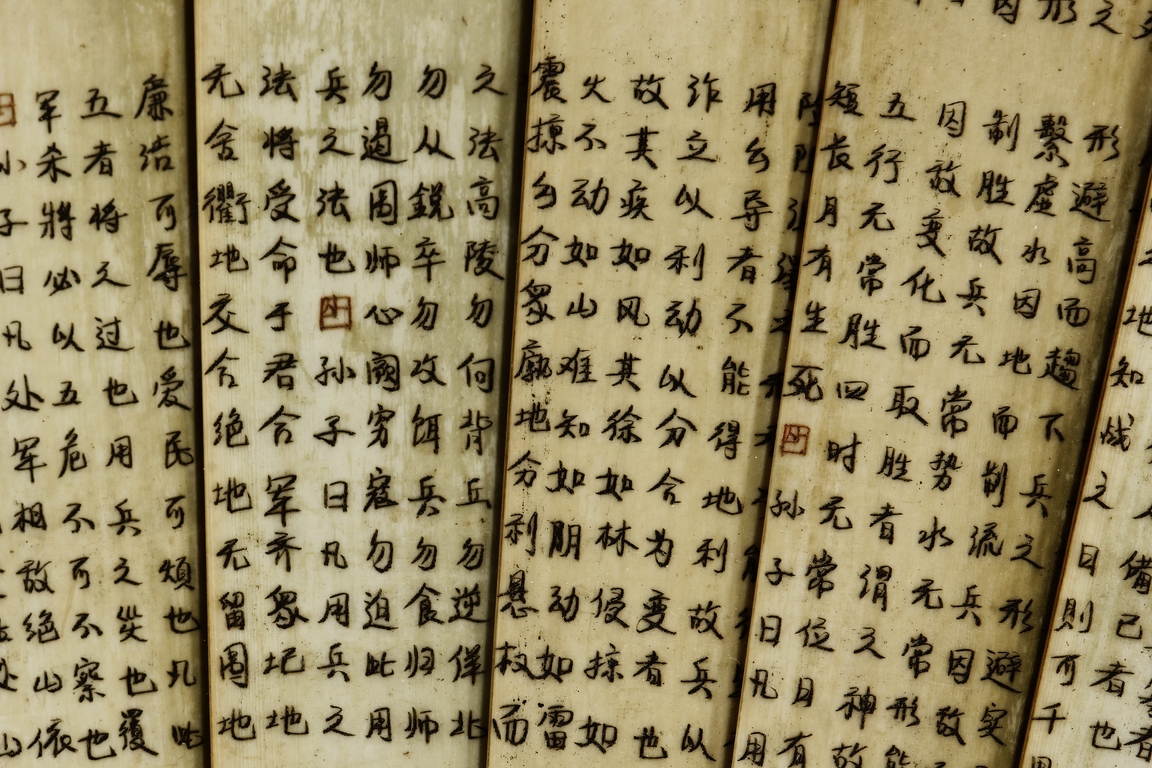 備已者也
地知战之日則可千里
形避高而趨下兵之形避实
繫虚水因地而制流兵因敌
制胜故兵无常势水无常形能
因敌变化而取胜者谓之神故
五行无常胜四时无常位日有
短長月有生死 孙子曰凡用
用乡导者不能得地利故兵以
诈立以利动以分合为变者也
故其疾如风其徐如林侵掠如
火不动如山难知如阴动如雷
震掠乡分眾廓地分利悬权而
之法高陵勿向背丘勿逆佯北
勿从鋭卒勿攻饵兵勿食归师
勿遏围师必阙穷寇勿迫此用
兵之法也 孙子曰凡用兵之
法将受命于君合军齐眾圮地
无舍衢地交合绝地无留围地
廉洁可辱也爱民可煩也凡此
五者将之过也用兵之災也覆
军杀將必以五危不可不察也
孙子曰凡处军相敌绝山依